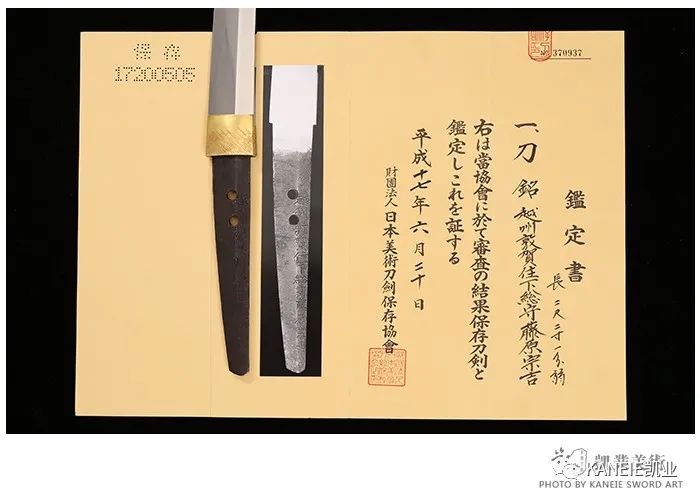 鑑定書
一、刀 銘 越州敦賀住下総守藤原宗吉
長 二尺二寸一分弱
右は當協會に於て審査の結果保存刀剣と
鑑定しこれを証する
平成十七年六月二十日
財團法人 日本美術刀劍保存協會
370937
保存
17200505
凯業美術
KANEIE凯业
PHOTO BY KANEIE SWORD ART